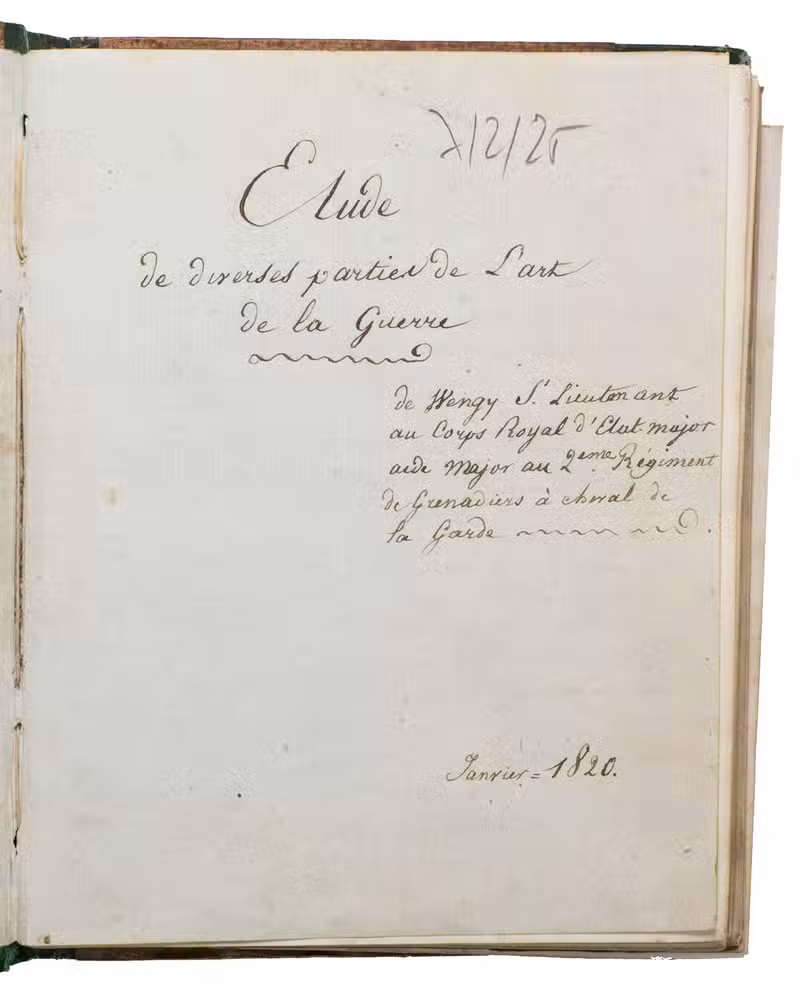 7/2/25
Etude
de diverses parties de L'art
de la Guerre
de Wengy S.t Lieutenant
au Corps Royal d'Etat-major
aide Major au 2eme Régiment
de Grenadiers à cheval de
la Garde
Janvier = 1820.